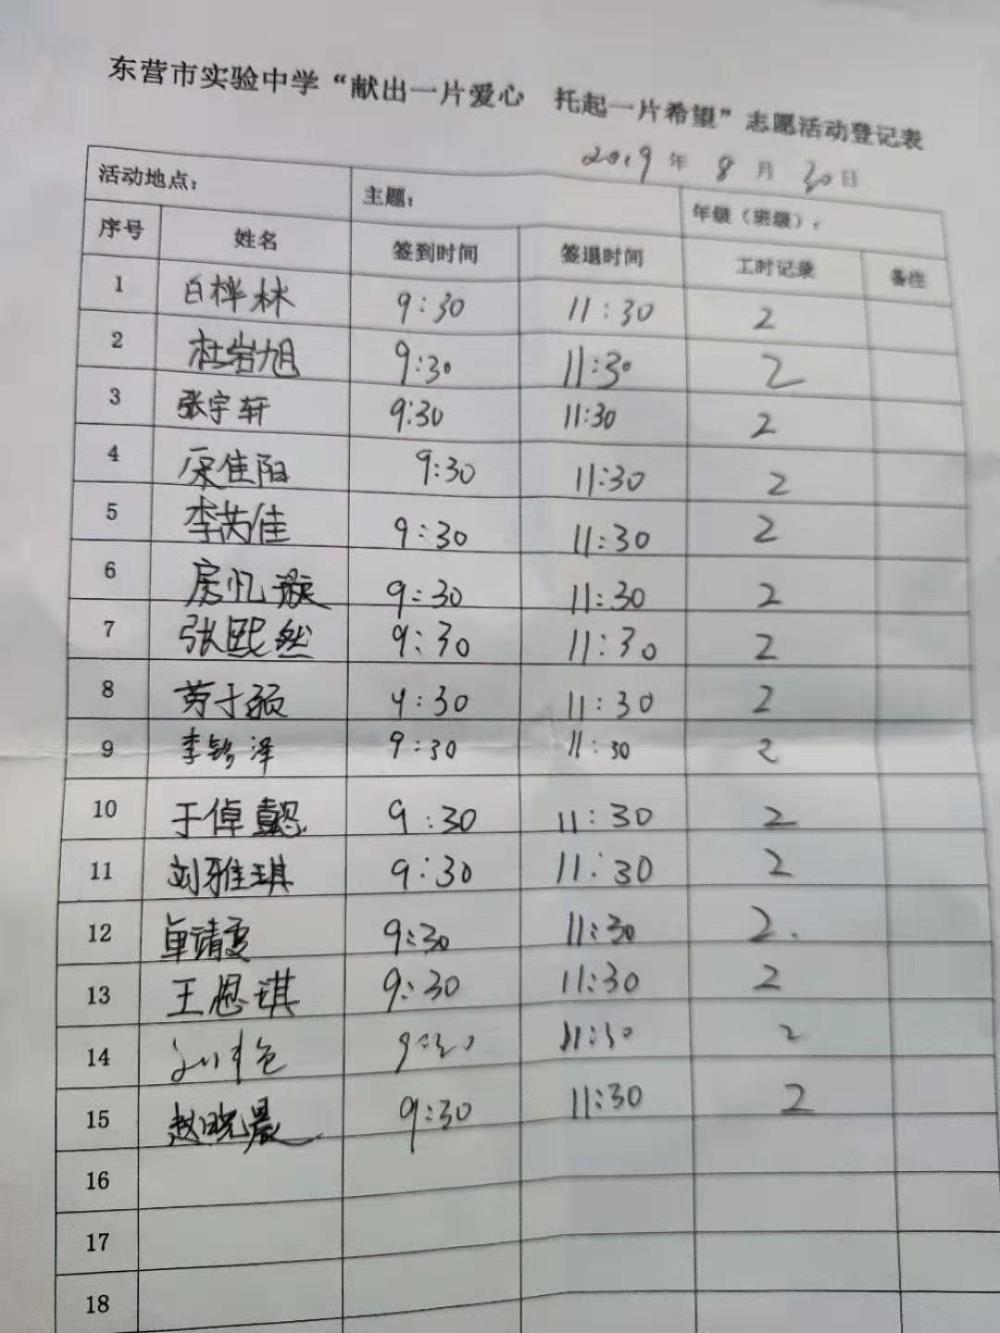 东营市实验中学“献出一片爱心 托起一片希望”志愿活动登记表
2019年 8月 30日
活动地点: 主题: 年级(班级):
序号 姓名 签到时间 签退时间 工时记录 备注
1 白桦林 9:30 11:30 2
2 杜岩旭 9:30 11:30 2
3 张宇轩 9:30 11:30 2
4 佳阳 9:30 11:30 2
5 李芮佳 9:30 11:30 2
6 房忆璇 9:30 11:30 2
7 张熙然 9:30 11:30 2
8 劳于硕 9:30 11:30 2
9 李铭泽 9:30 11:30 2
10 于倬懿 9:30 11:30 2
11 刘雅琪 9:30 11:30 2
12 单靖雯 9:30 11:30 2.
13 王恩琪 9:30 11:30 2
14 9:30 11:30 2
15 赵晓晨 9:30 11:30 2
16
17
18